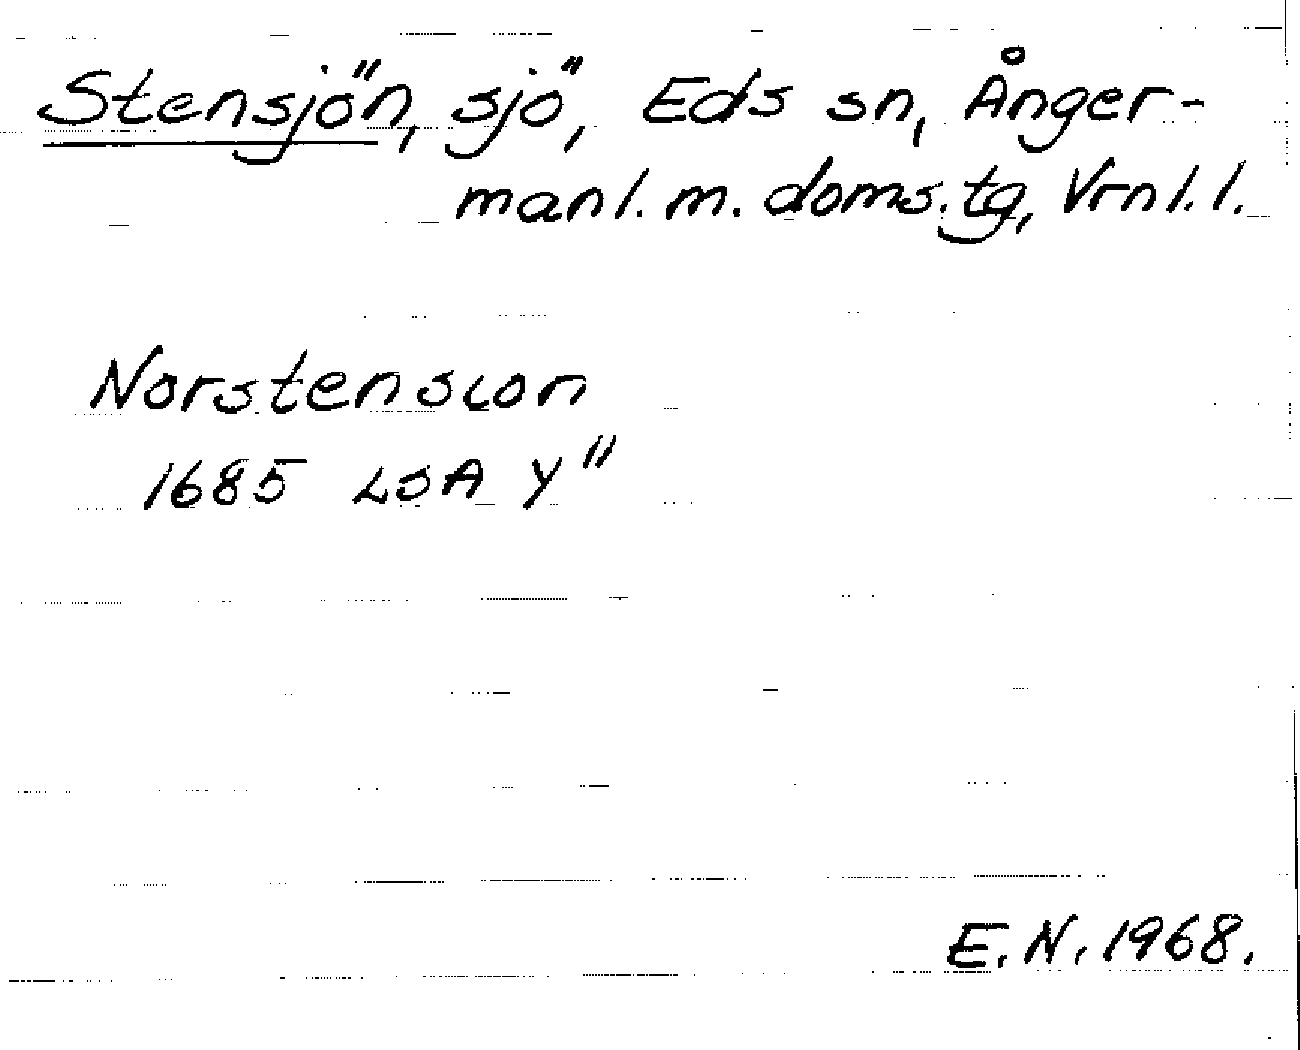 Stensjön, sjö, Eds sn, Ånger-
manl. m. doms.tg, Vrnl. l.
Norstension
1685 LSA Y"
E.N. 1968.